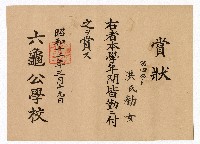 賞狀
洪氏勸女
右者本學年間皆勤ニ付
之ヲ賞ス
昭和十二年三月十九日
六龜公學校